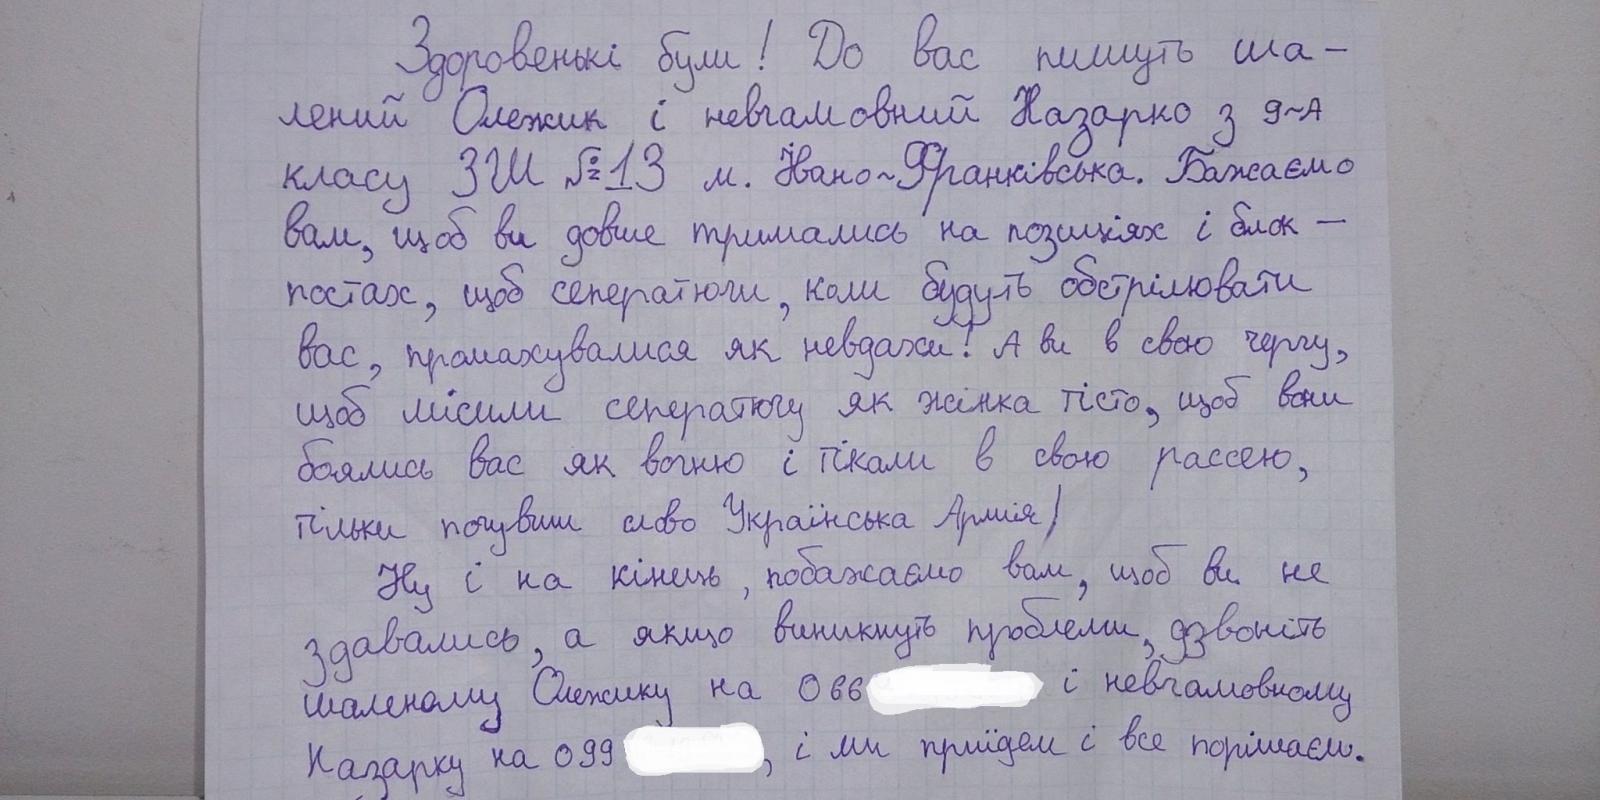 Здоровенькі були! До вас пишуть ша-
лений Олежик і невгамовний Назарко з 9-А
класу ЗШ №13 м. Івано-Франківська. Бажаємо
вам, щоб ви довше тримались на позиціях і блок-
постах, щоб сеператюги, коли будуть обстрілювати
вас, промахувалися як невдахи! А ви в свою чергу,
щоб місили сеператюгу як жінка тісто, щоб вони
боялись вас як вогню і тікали в свою рассею,
тільки почувши слово Українська Армія!
Ну і на кінець, побажаємо вам, щоб ви не
здавались, а якщо виникнуть проблеми, дзвоніть
шаленому Олежику на 066 і невгамовному
Назарку на 099, і ми прийдем і все порішаєм.